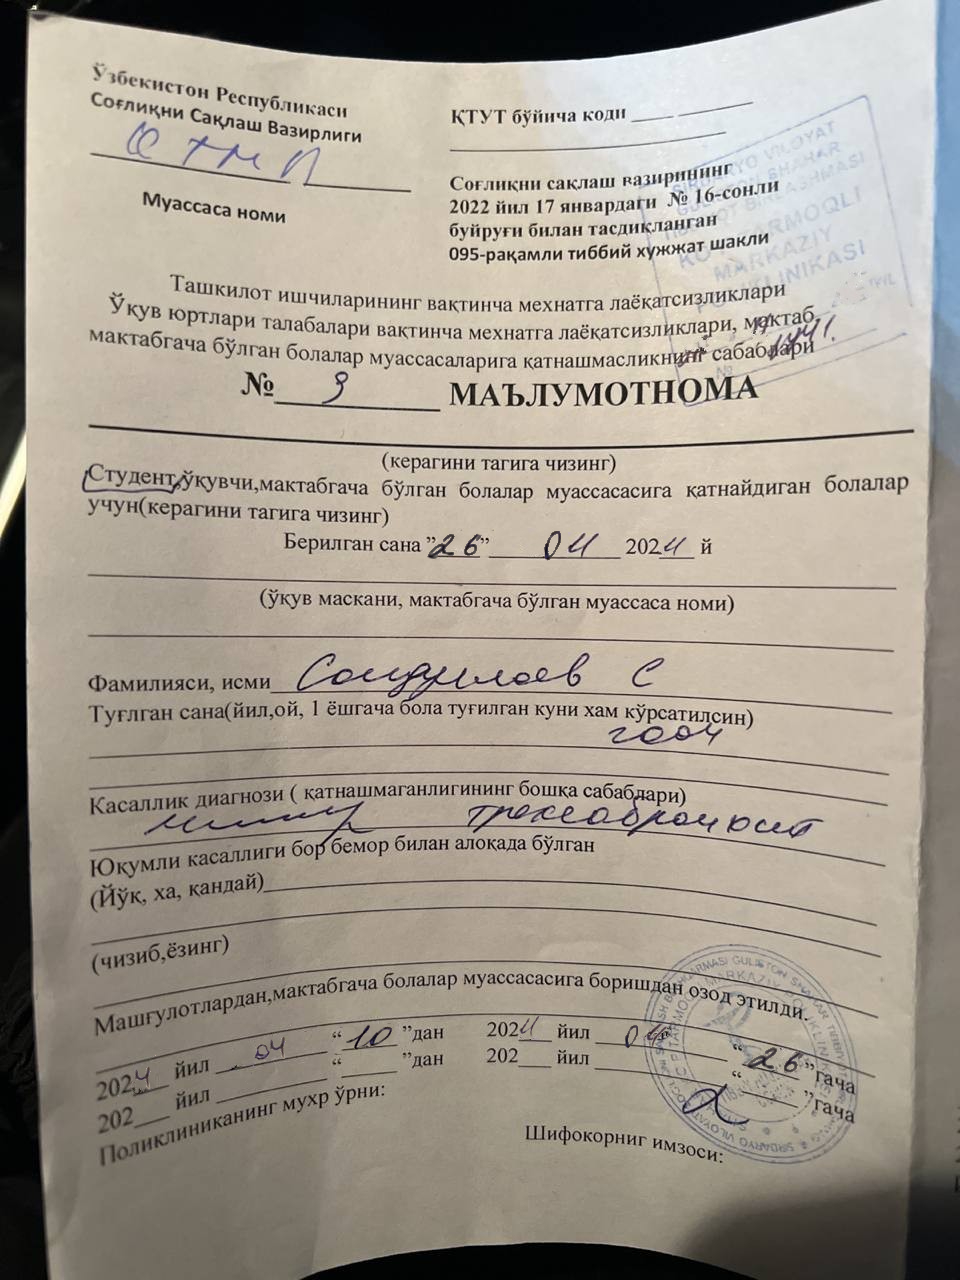 Ўзбекистон Республикаси
Соғлиқни Сақлаш Вазирлиги
Муассаса номи
ҚТУТ бўйича коди
Соғлиқни сақлаш вазирининг
2022 йил 17 январдаги № 16-сонли
буйруғи билан тасдиқланган
095-рақамли тиббий хужжат шакли
SIRDARYO VILOYAT
GULISTON SHAHAR
TIBBIYOT BIRLASHMASI
KO'P TARMOQLI
MARKAZIY
POLIKLINIKASI
Ташкилот ишчиларининг вақтинча мехнатга лаёқатсизликлари
Ўқув юртлари талабалари вақтинча мехнатга лаёқатсизликлари, мактаб,
мактабгача бўлган болалар муассасаларига қатнашмасликнинг сабаблари
№ 9 МАЪЛУМОТНОМА
(керагини тагига чизинг)
Студент,ўқувчи,мактабгача бўлган болалар муассасасига қатнайдиган болалар
учун(керагини тагига чизинг)
Берилган сана ”26” 04 2024 й
(ўқув маскани, мактабгача бўлган муассаса номи)
Фамилияси, исми С
Туғлган сана(йил,ой, 1 ёшгача бола туғилган куни хам кўрсатилсин)
2004
Касаллик диагнози ( қатнашмаганлигининг бошқа сабаблари)
трахеобронхит
Юқумли касаллиги бор бемор билан алоқада бўлган
(Йўқ, ха, қандай)
(чизиб,ёзинг)
Машғулотлардан,мактабгача болалар муассасасига боришдан озод этилди.
2024 йил 04 “10”дан 2024 йил 04 “26”гача
202 йил “ ”дан 202 йил “ ”гача
Поликлиниканинг мухр ўрни:
Шифокорниг имзоси: